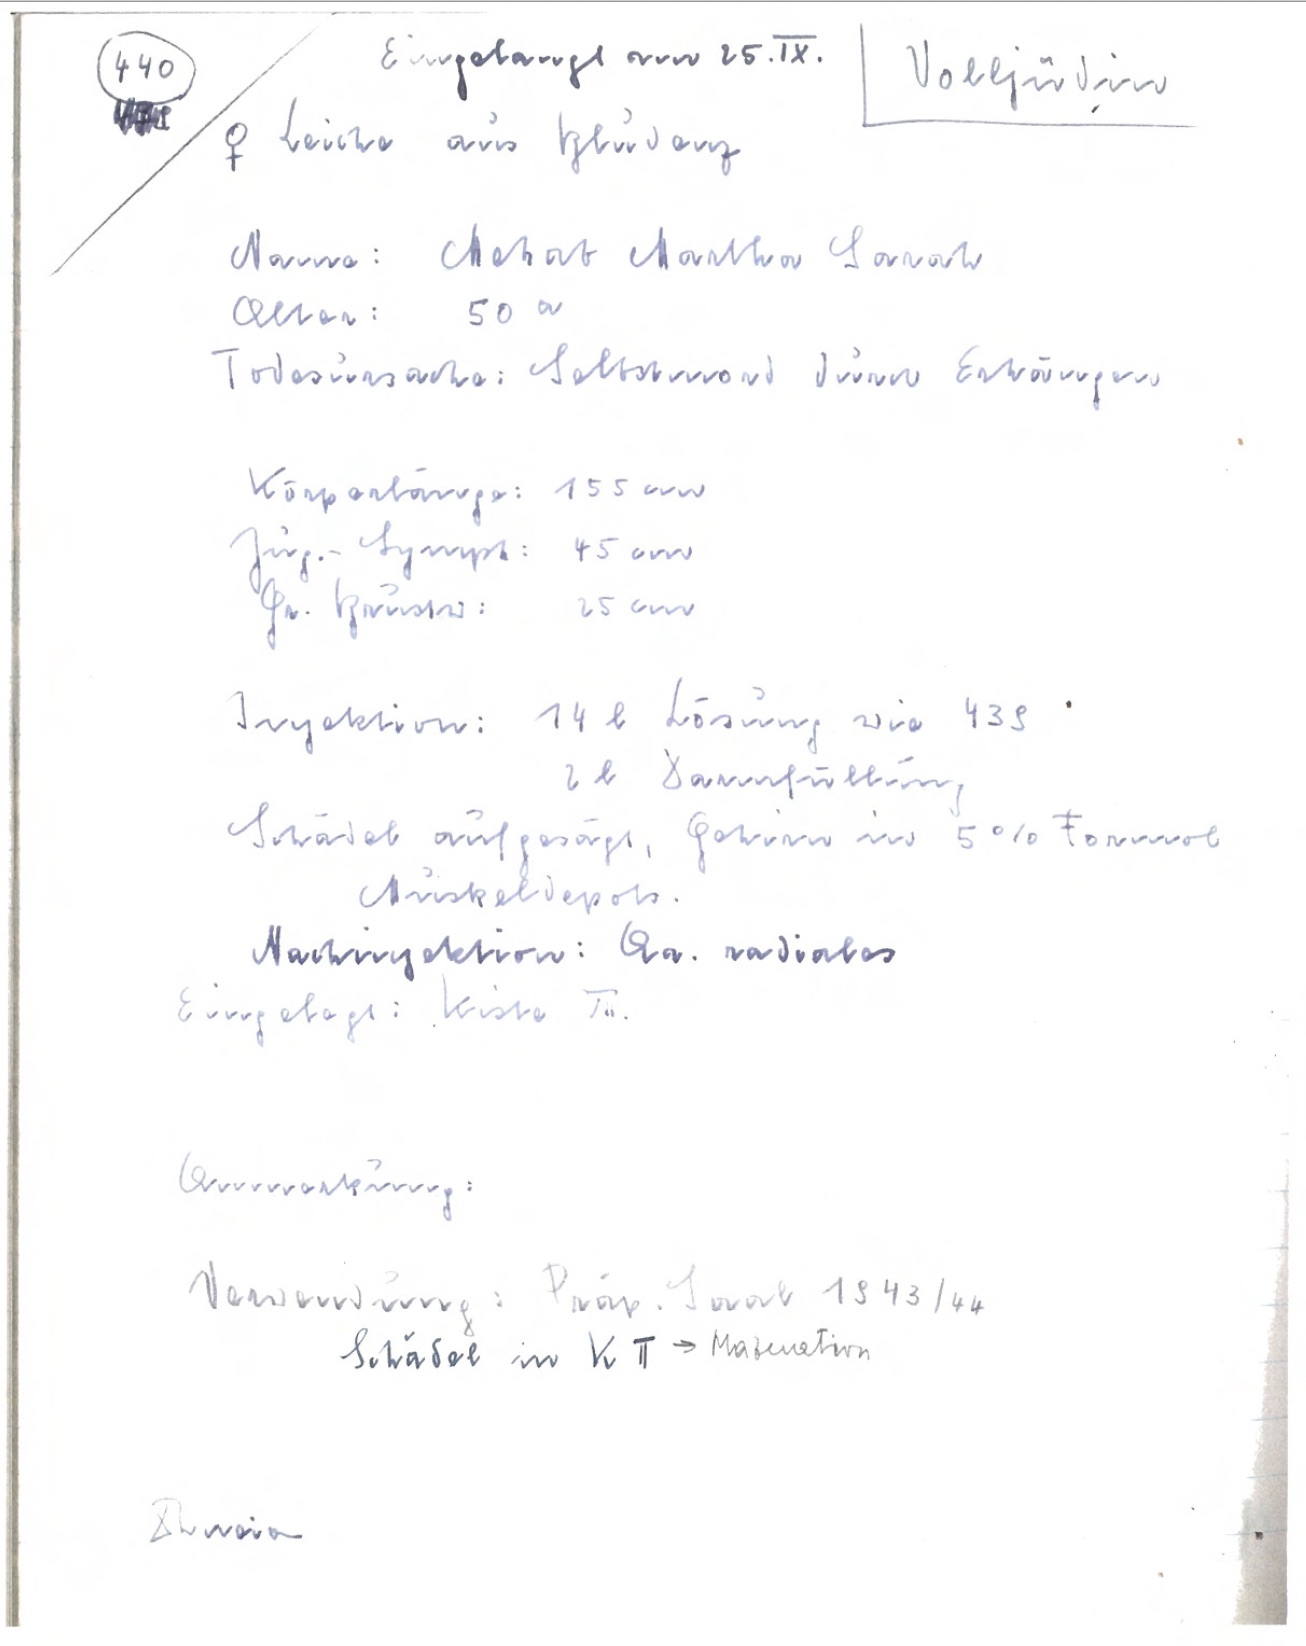 440
Eingelangt am 25.IX.
Volljüdin
♀ Leiche aus Bludenz
Name: Nehab Martha Sarah
Alter: 50 a
Todesursache: Selbstmord durch Erhängen
Körperlänge: 155 cm
Jug.- Symph: 45 cm
Gr. Brustw: 25 cm
Injektion: 14 l Lösung wie 439
2 l Darmfüllung
Schädel aufgesägt, Gehirn in 5% Formol
Muskeldepots.
Nachinjektion: Aa. radiales
Eingelegt: Kiste III.
Anmerkung:
Verwendung: Präp. Saal 1943/44
Schädel in K II → Mazeration